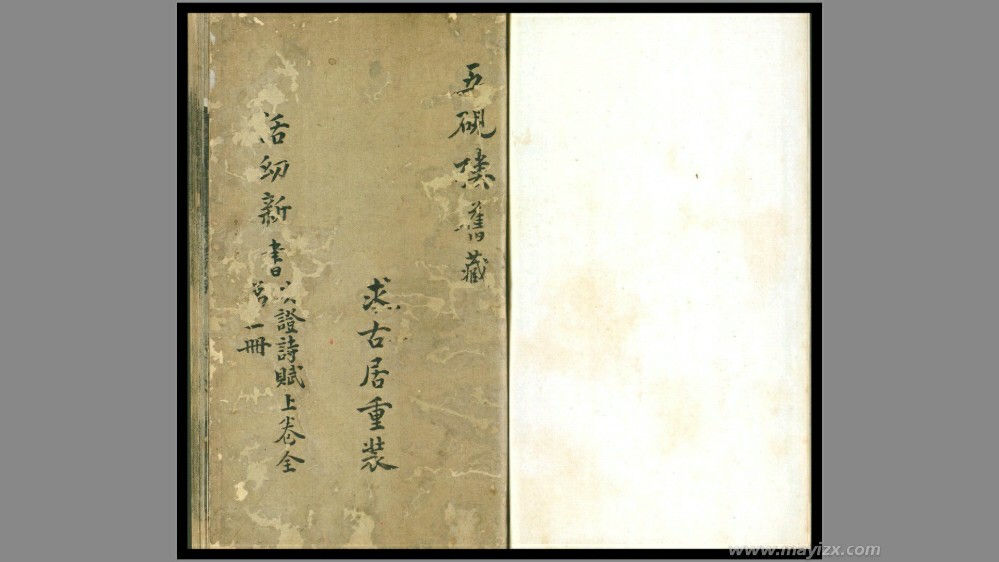 五硯樓舊藏
求古居重裝
活幼新書
决證詩賦上卷全
一冊
www.mayizx.com